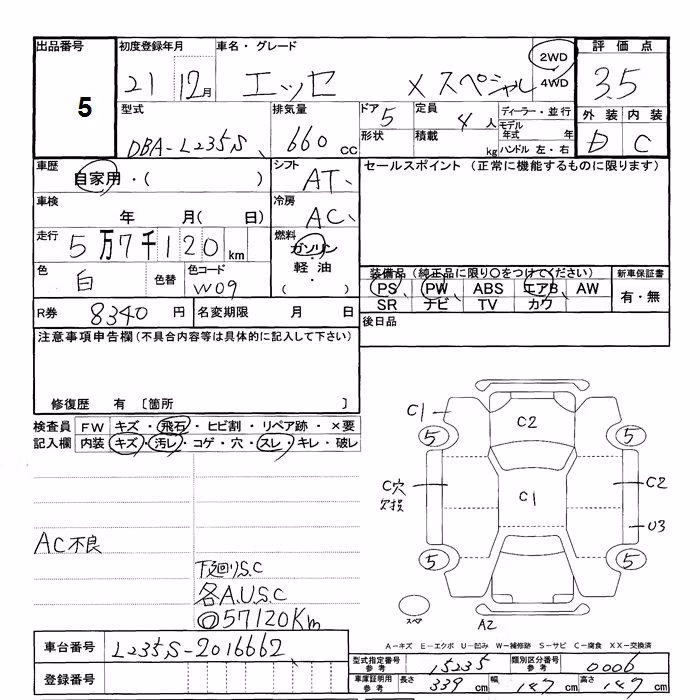 出品番号
5
初度登録年月
21 12月
車名・グレード
エッセ Xスペシャル
2WD
4WD
評価点
3.5
外装 内装
D C
型式
DBA-L235S
排気量
660 cc
ドア 5
形状
定員 4 人
積載 kg
ディーラー・並行
モデル年式 年
ハンドル 左・右
車歴
自家用・( )
シフト
AT
セールスポイント (正常に機能するものに限ります)
車検
年 月( 日)
冷房
AC
走行
5万7千120 km
燃料
ガソリン
軽油
・
( )
色
白
色替
色コード
W09
装備品 (純正品に限り○をつけてください)
PS PW ABS エアB AW
SR ナビ TV カワ
新車保証書
有・無
R券 8340 円
名変期限 月 日
後日品
注意事項申告欄(不具合内容等は具体的に記入して下さい)
修復歴 有 〔箇所 〕
検査員記入欄
FW キズ・飛石・ヒビ割・リペア跡・×要
内装 キズ・汚レ・コゲ・穴・スレ・キレ・破レ
AC不良
下廻りS.C
各A.U.S.C
◎57120Km
C1
C2
5
5
C穴
欠損
C1
C2
U3
5
5
スペア
A2
A-キズ E-エクボ U-凹み W-補修跡 S-サビ C-腐食 XX-交換済
車台番号 L235S-2016662
登録番号
型式指定番号 参考 15235
類別区分番号 参考 0006
車庫証明用 参考
長さ 339 cm
幅 147 cm
高さ 147 cm